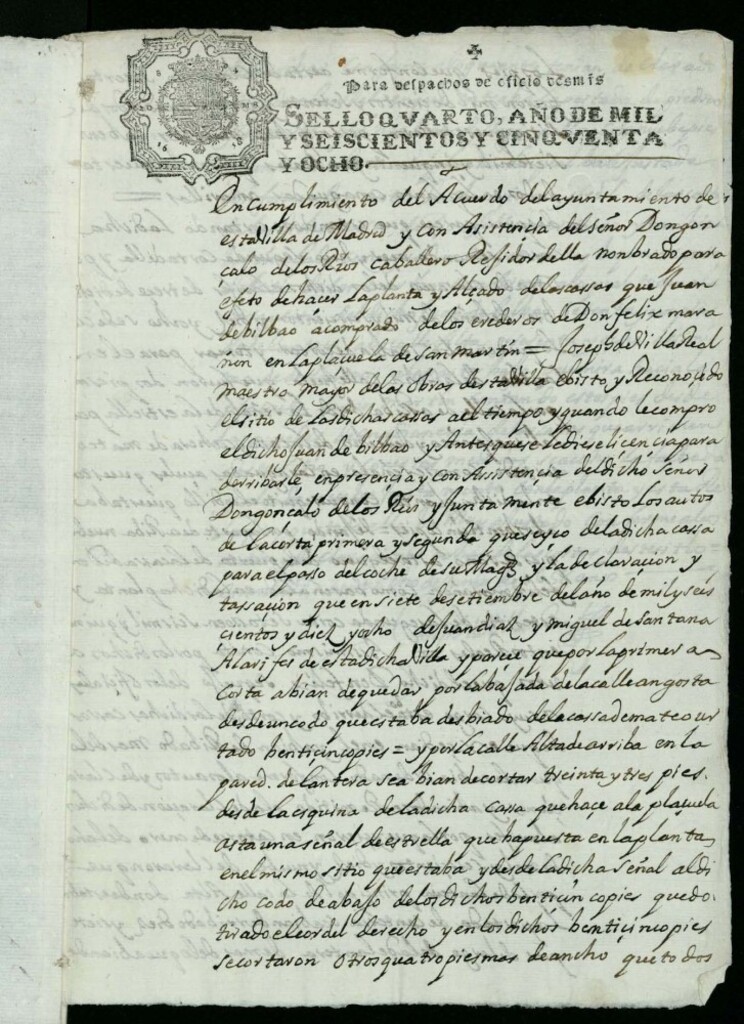 Para despachos de oficio dos mrs
SELLO QVARTO, AÑO DE MIL
Y SEISCIENTOS Y CINQVENTA
Y OCHO.
En cumplimiento del Acuerdo del ayuntamiento de
esta Villa de Madrid y con Asistencia del señor Don gon
çalo de los Rios caballero Residor della nonbrado para
efeto de hacer La planta y Alçado de las cassas que Juan
de bilbao a comprado de los erederos de Don felix mara
ñon en La plaçuela de san martin = Joseph de Villa Real
maestro mayor de las obras desta Villa ebisto y Reconoçido
el sitio de Las dichas cassas a el tiempo y quando le compro
el dicho Juan de bilbao y Antes que se le diese liçencia para
derribarle, en presencia y con Assistençia del dicho señor
Don gonçalo de los Rios y Junta mente ebisto Los autos
de La corta primera y segunda que se yço de la dicha cassa
para el passo del coche de su Magd y la declaracion y
tassaçion que en siete de setiembre del año de mil y seis
çientos y diez y ocho de Juan diaz y miguel de santana
Alarifes de esta dicha Villa y parece que por La primera
corta abian de quedar por la bajada de la calle angosta
desde un codo que estaba desbiado de la cassa de mateo ur
tado benticinco pies = y por la calle Alta de arriba en la
pared. delantera se abian de cortar treinta y tres pies.
desde la esquina de la dicha cassa que haçe a la plaçuela
asta una señal de estrella que ha puesta en la planta
en el mismo sitio que estaba y desde la dicha señal al di
cho codo de abajo de los dichos benticin co pies quedo
tirado el cordel derecho y en los dichos bentiçinco pies
se cortaron otros quatro pies mas de ancho que todos